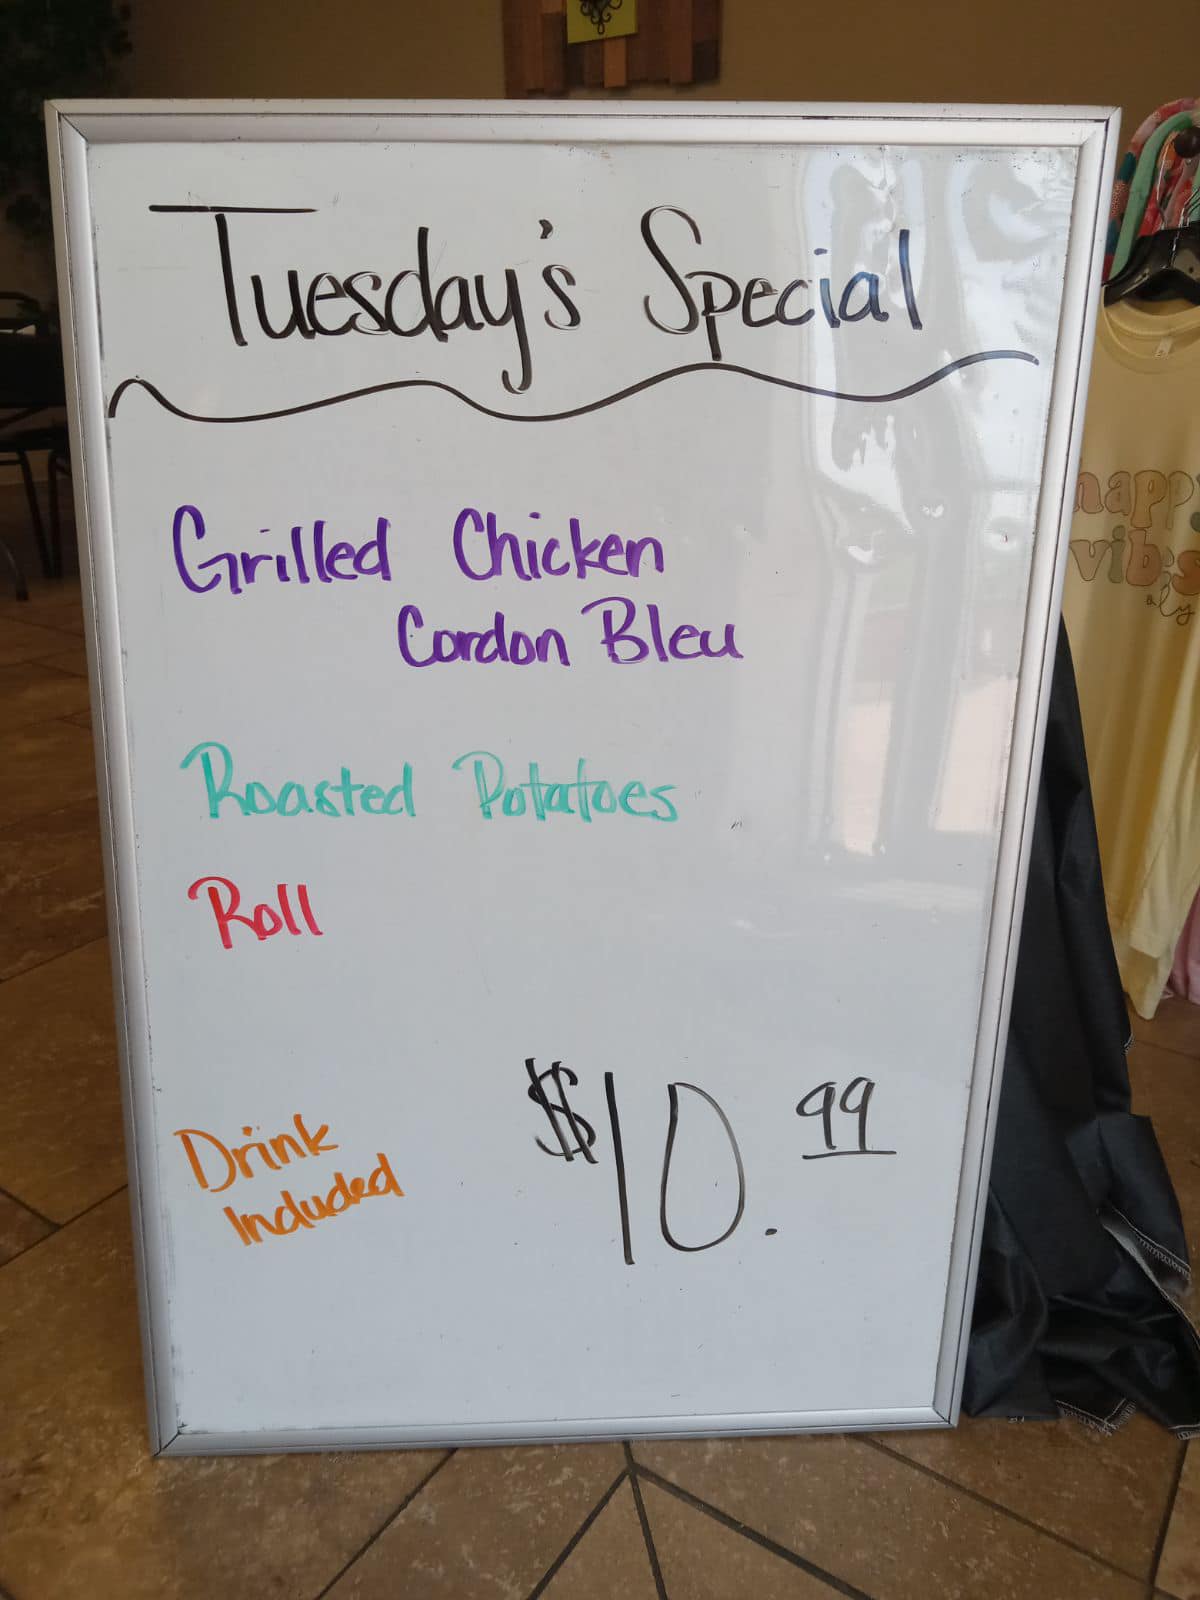 Tuesday's Special
Grilled Chicken
Cordon Bleu
Roasted Potatoes
Roll
Drink
Included
$10.99
happy
vibes
only